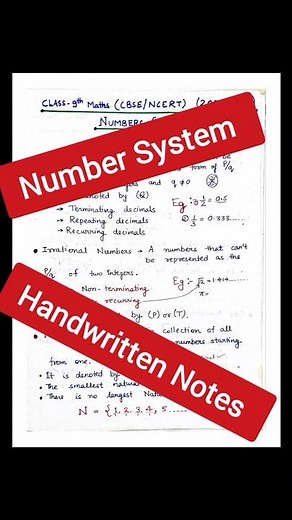 CLASS-9th Maths (CBSE/NCERT) (20
NUMBERS
Number System
form of P/q
and q≠0
noted by (Q)
Eg :- ① 1/2 = 0.5
→ Terminating decimals
→ Repeating decimals
② 1/3 = 0.333......
→ Recurring decimals
• Irrational Numbers → A numbers that can't
be represented as the
P/q of two Integers.
Non-terminating
Eg :- √2 = 1.414......
recurring
π =
by (P) or (T).
Handwritten Notes
collection of all
numbers starting
from one.
• It is denoted by
• The smallest natural
• There is no largest Natu
N = {1, 2, 3, 4, 5 ......